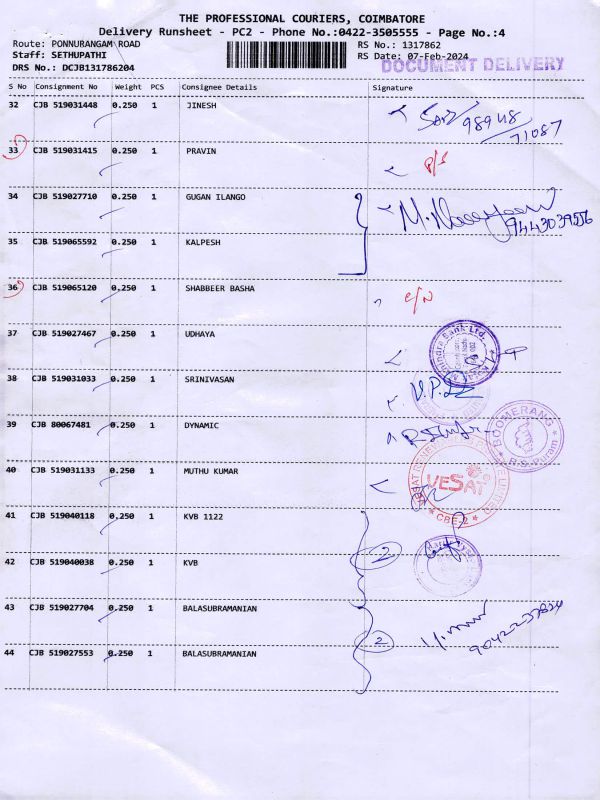 THE PROFESSIONAL COURIERS, COIMBATORE
Delivery Runsheet - PC2 - Phone No.:0422-3505555 - Page No.:4
Route: PONNURANGAM ROAD RS No.: 1317862
Staff: SETHUPATHI RS Date: 07-Feb-2024
DRS No.: DCJB131786204 DOCUMENT DELIVERY
S No Consignment No Weight PCS Consignee Details Signature
32 CJB 519031448 0.250 1 JINESH
98948
71087
33 CJB 519031415 0.250 1 PRAVIN
34 CJB 519027710 0.250 1 GUGAN ILANGO
9443039556
35 CJB 519065592 0.250 1 KALPESH
36 CJB 519065120 0.250 1 SHABBEER BASHA
37 CJB 519027467 0.250 1 UDHAYA
38 CJB 519031033 0.250 1 SRINIVASAN
39 CJB 80067481 0.250 1 DYNAMIC
BOOMERANG
R.S.Puram
40 CJB 519031133 0.250 1 MUTHU KUMAR
VESAT
CBE-2
41 CJB 519040118 0.250 1 KVB 1122
2
42 CJB 519040038 0.250 1 KVB
43 CJB 519027704 0.250 1 BALASUBRAMANIAN
2
44 CJB 519027553 0.250 1 BALASUBRAMANIAN